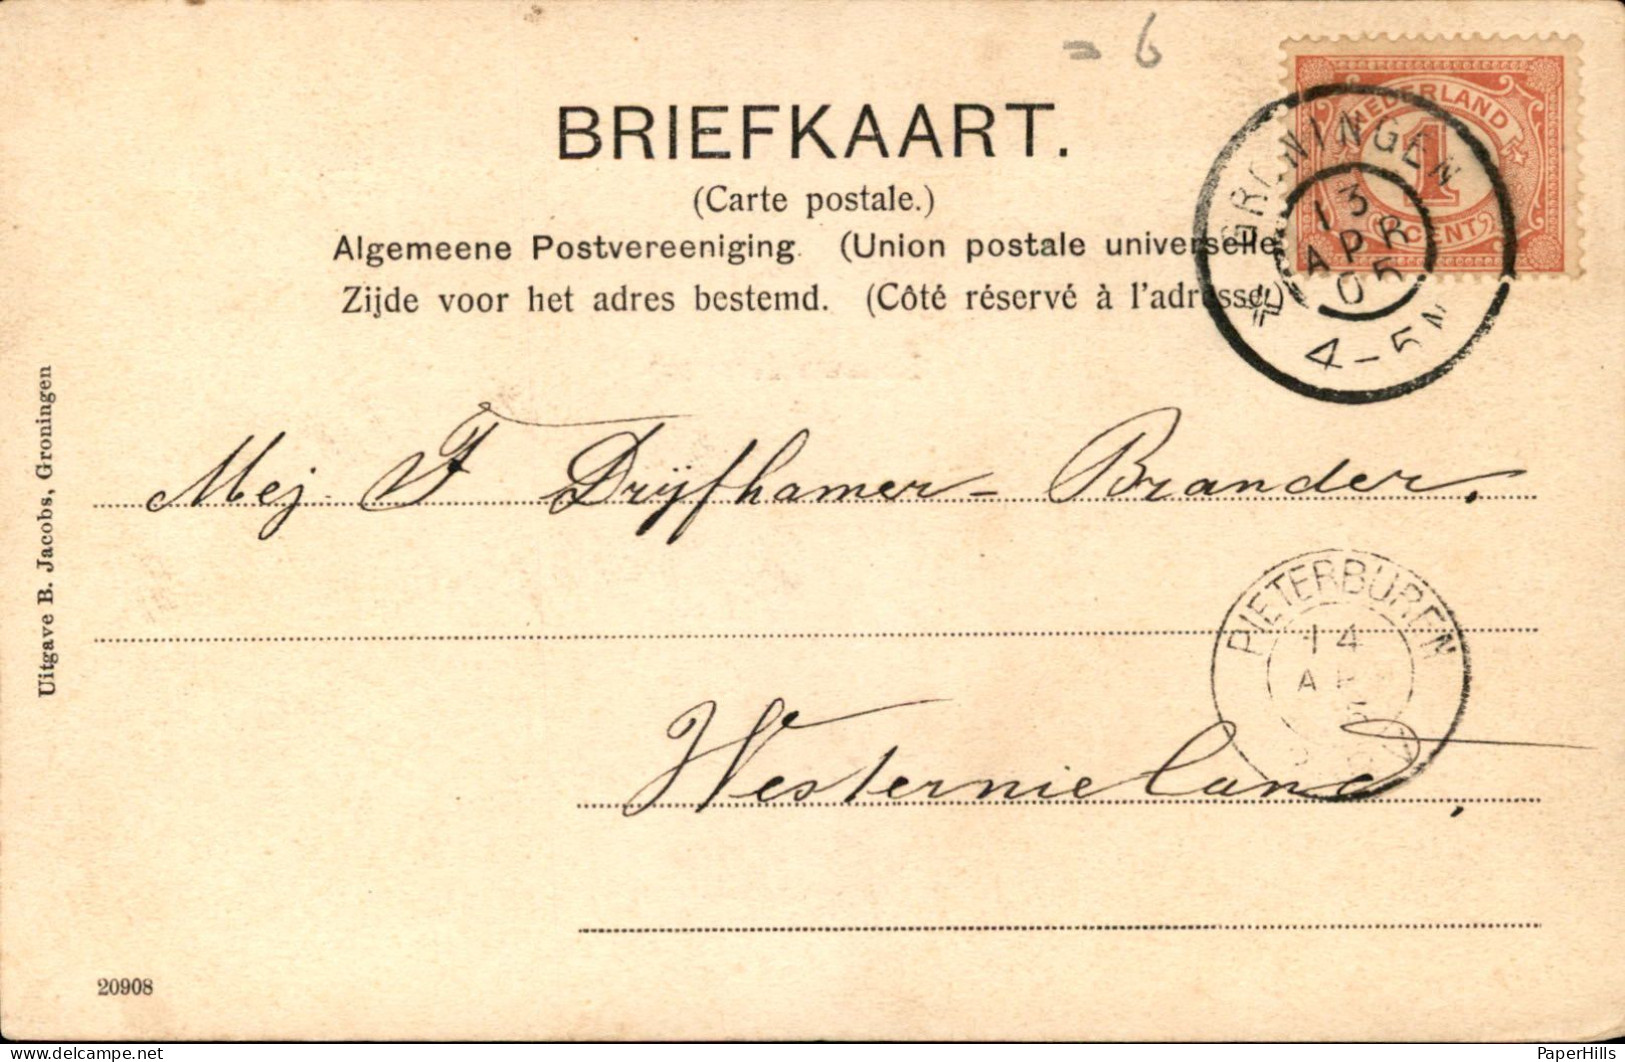 = 6
BRIEFKAART.
(Carte postale.)
Algemeene Postvereeniging. (Union postale universelle
Zijde voor het adres bestemd. (Côté réservé à l'adresse.)
NEDERLAND
1
CENT
GRONINGEN
13
APR
05
4-5N
Mej. F Drijfhamer-Brander.
PIETERBUREN
14
AP
Westernieland,
Uitgave B. Jacobs, Groningen
20908
PaperHills